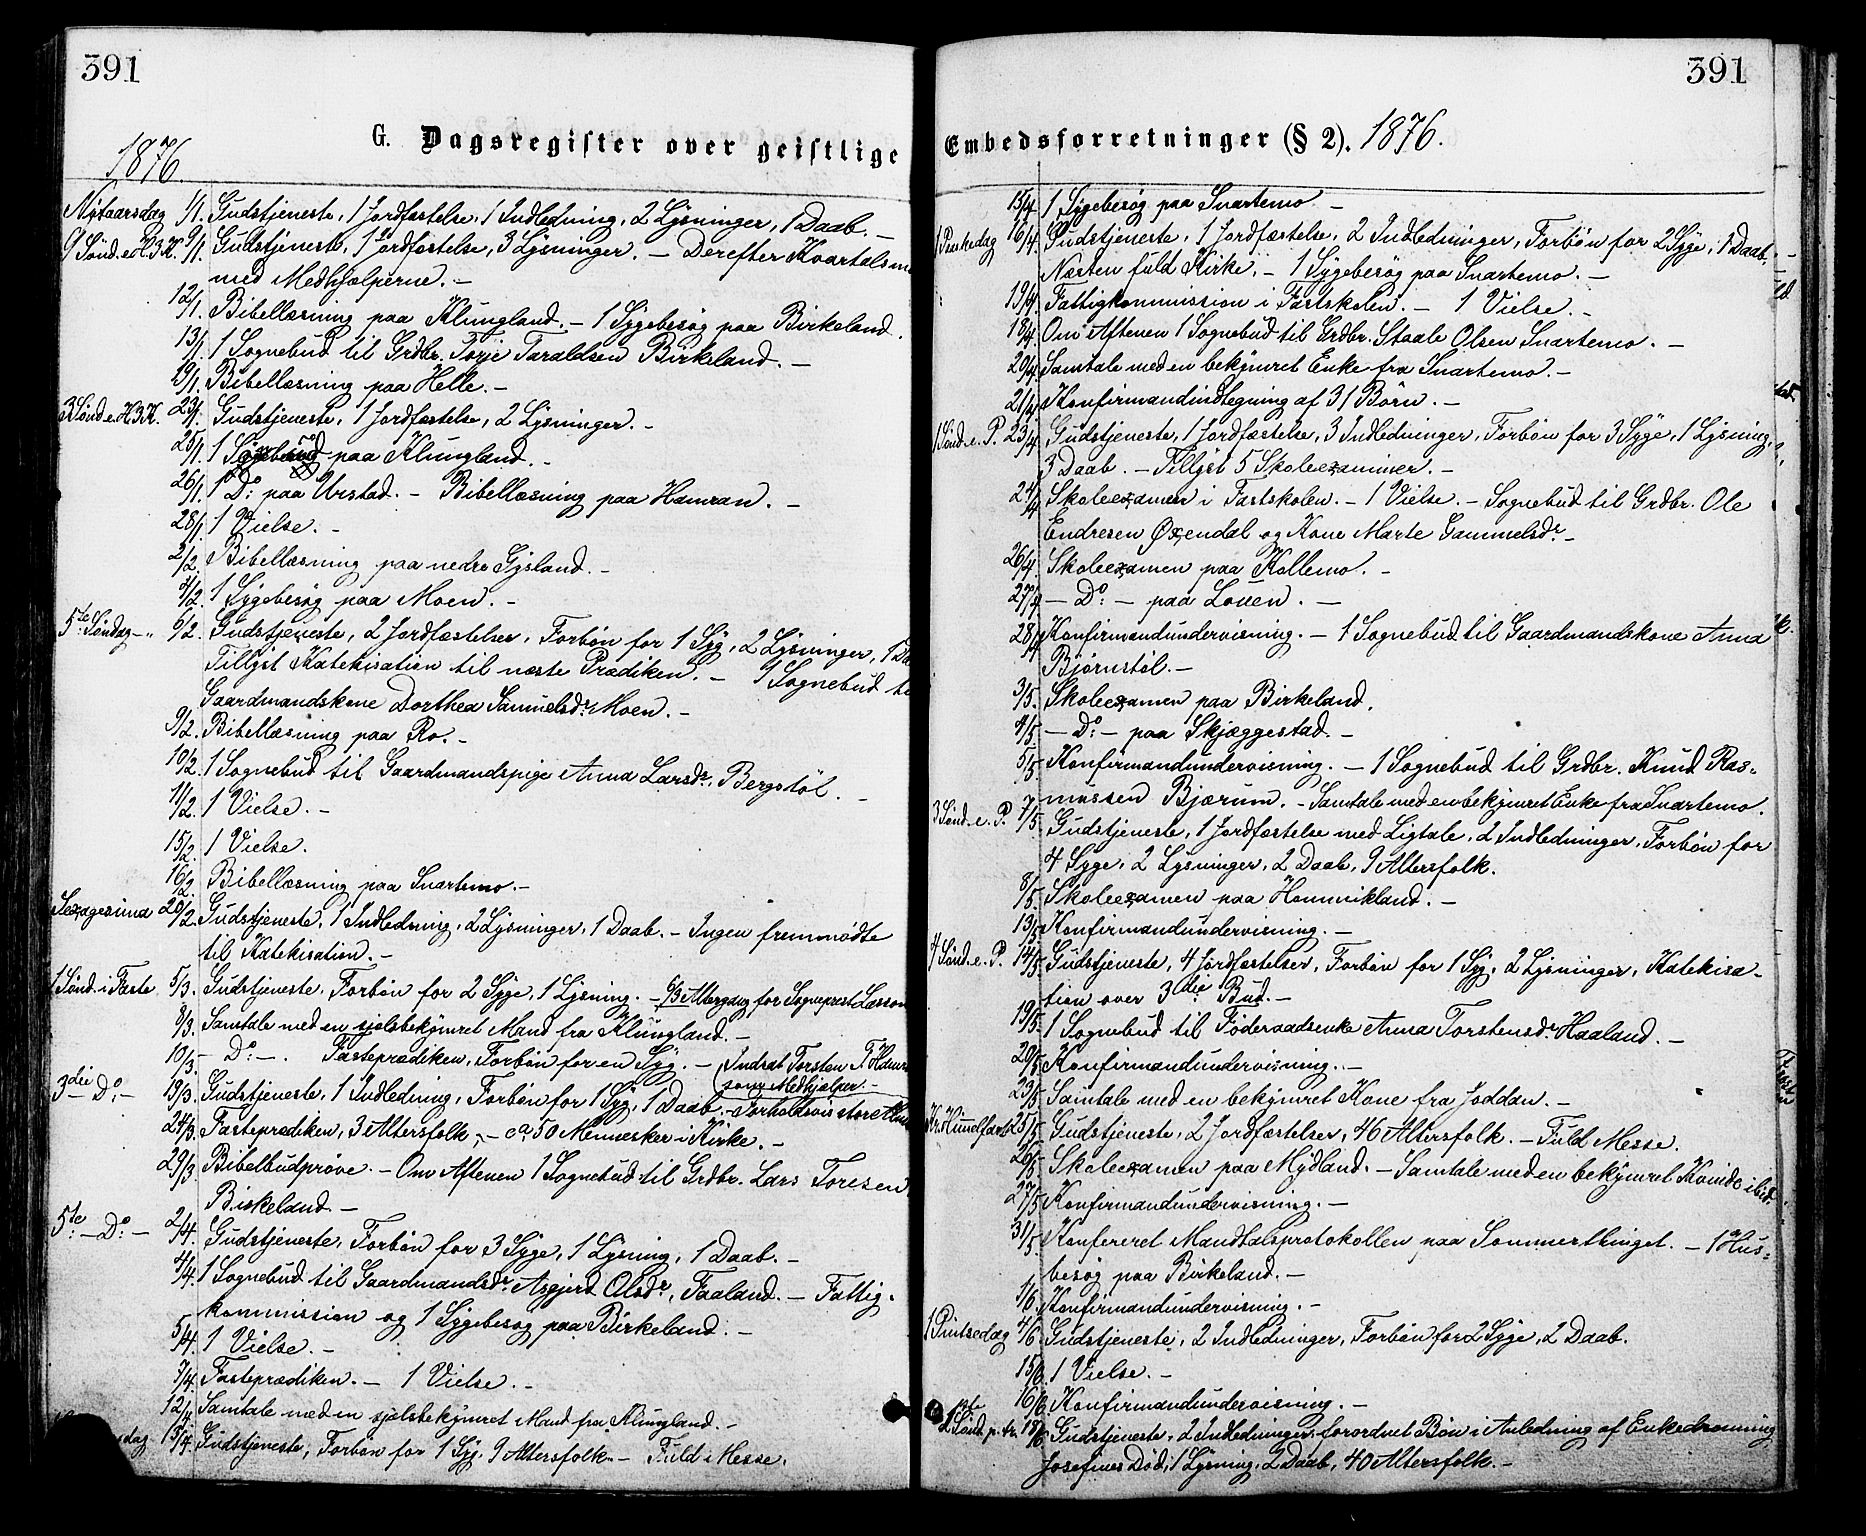 391
G. Dagsregister over geistlige
1876.
Nytaarsdag 1/1. Gudstjeneste, 1 Jordfæstelse, 1 Indledning, 2 Lysninger, 1 Daab. –
9/1. Gudstjeneste, 1 Jordfæstelse, 3 Lysninger. – Derefter
med Medhjælperne. –
12/1. Bibellæsning paa Klungland. – 1 Sygebesøg paa Birkeland.
13/1. 1 Sognebud til Grdbr. Torje Taraldsen Birkeland. –
19/1. Bibellæsning paa Helle. –
3 Sønd. e. H.3K. 23/1. Gudstjeneste, 1 Jordfæstelse, 2 Lysninger. –
25/1. 1 paa Klungland. –
26/1. 1 Do: paa Urstad. – Bibellæsning paa Hamran. –
28/1. 1 Vielse. –
2/2. Bibellæsning paa nedre Gysland. –
4/2. 1 Sygebesøg paa Moen. –
5te Søndag – " 6/2. Gudstjeneste, 2 Jordfæstelser, Forbøn for 1 Syg, 2 Lysninger, 1
Tillyst Katekisation til næste Prædiken. – 1 Sognebud
Gaardmandskone Dorthea Samuelsdr. Moen. –
9/2. Bibellæsning paa Ro. –
10/2. 1 Sognebud til Gaardmandspige Anna Larsdr, Bergstøl. –
11/2. 1 Vielse. –
15/2. 1 Vielse.
16/2. Bibellæsning paa Snartemo. –
Sexagesima 20/2. Gudstjeneste, 1 Indledning, 2 Lysninger, 1 Daab. – Ingen fremmødte
til Katekisation. –
1 Sønd. i Faste 5/3. Gudstjeneste, Forbøn for 2 Syge, 1 Lysning. – 6/3 Altergang for Sogneprest
8/3. Samtale med en sjelsbekymret Mand fra Klungland. –
10/3. – Do: –. Fasteprædiken, Forbøn for en Syg. – Indsat Torsten T.
som Medhjælper. –
3die – Do: – 19/3. Gudstjeneste, 1 Indledning, Forbøn for 1 Syg, 1 Daab. – Forholdsvis store
24/3. Fasteprædiken, 3 Altersfolk. – ca 50 Mennesker i Kirke. –
29/3. Bibelbudprøve. – Om Aftenen 1 Sognebud til Grdbr. Lars Toresen
Birkeland. –
5te – Do: – 2/4. Gudstjeneste, Forbøn for 3 Syge, 1 Lysning, 1 Daab. –
4/4. 1 Sognebud til Gaardmandsdr. Asgjerd Olsdr, Faaland. – Fattig-
kommission og 1 Sygebesøg paa Birkeland. –
5/4. 1 Vielse. –
7/4. Fasteprædiken. – 1 Vielse. –
12/4. Samtale med en sjelsbekymret Mand fra Klungland. –
Gudstjeneste, Forbøn for 1 Syg. 9 Altersfolk. – Fuld Messe.
391
Embedsforretninger (§ 2). 1876.
15/4. 1 Sygebesøg paa Snartemo –
1 Paaskedag 16/4. Gudstjeneste, 1 Jordfæstelse, 2 Indledninger, Forbøn for 2 Syge, 1 Daab. –
Næsten fuld Kirke. – 1 Sygebesøg paa Snartemo. –
19/4. Fattigkommission i Fastskolen. – 1 Vielse. –
18/4. Om Aftenen 1 Sognebud til Grdbr. Staale Olsen Snartemo. –
20/4. Samtale med en bekymret Enke fra Snartemo. –
21/4. Konfirmandindtegning af 31 Børn. –
1 Sønd. e. P. 23/4. Gudstjeneste, 1 Jordfæstelse, 3 Indledninger, Forbøn for 3 Syge, 1 Lysning,
3 Daab. – Tillyst 5 Skoleexaminer. –
24/4. Skoleexamen i Fastskolen. – 1 Vielse. – Sognebud til Grdbr. Ole
Endresen Øxendal og Kone Marte Gammelsdr. –
26/4. Skoleexamen paa Kollemo. –
27/4. – Do: – paa Louen. –
28/4. Konfirmandundervisning. – 1 Sognebud til Gaardmandskone Anna
Bjørnstøl. –
3/5. Skoleexamen paa Birkeland.
4/5. – Do: – paa Skjæggestad. –
5/5. Konfirmandundervisning. – 1 Sognebud til Grdbr. Knud Ras-
mussen Bjærum. – Samtale med en bekymret Enke fra Snartemo.
3 Sønd. e. P. 7/5. Gudstjeneste, 1 Jordfæstelse med Ligtale, 2 Indledninger, Forbøn for
4 Syge, 2 Lysninger, 2 Daab, 9 Altersfolk.
8/5. Skoleexamen paa Hommikland. –
13/5. Konfirmandundervisning. –
4 Sønd. e. P. 14/5. Gudstjeneste, 4 Jordfæstelser, Forbøn for 1 Syg, 2 Lysninger, Katekisa-
tion over 3die Bud. –
19/5. 1 Sognebud til Føderaadsenke Anna Torstensdr. Haaland. –
20/5. Konfirmandundervisning. –
23/5. Samtale med en bekymret Kone fra Joddan. –
Kr. Himmelfart 25/5. Gudstjeneste, 2 Jordfæstelser, 46 Altersfolk. – Fuld Messe.
26/5. Skoleexamen paa Mydland. – Samtale med en bekymret Kvinde ibid.
27/5. Konfirmandundervisning. –
31/5. Konfereret Mandtalsprotokollen paa Sommerthinget. – 1 Hus-
besøg paa Birkeland. –
1/6. Konfirmandundervisning. –
1 Pintsedag 4/6. Gudstjeneste, 2 Indledninger, Forbøn for 2 Syge, 2 Daab.
15/6. 1 Vielse. –
16/6. Konfirmandundervisning. –
Sønd. p. tr. 18/6. Gudstjeneste, 2 Indledninger, forordnet Bøn i Anledning af Enkedronning
Josefines Død, 1 Lysning, 2 Daab, 40 Altersfolk. –